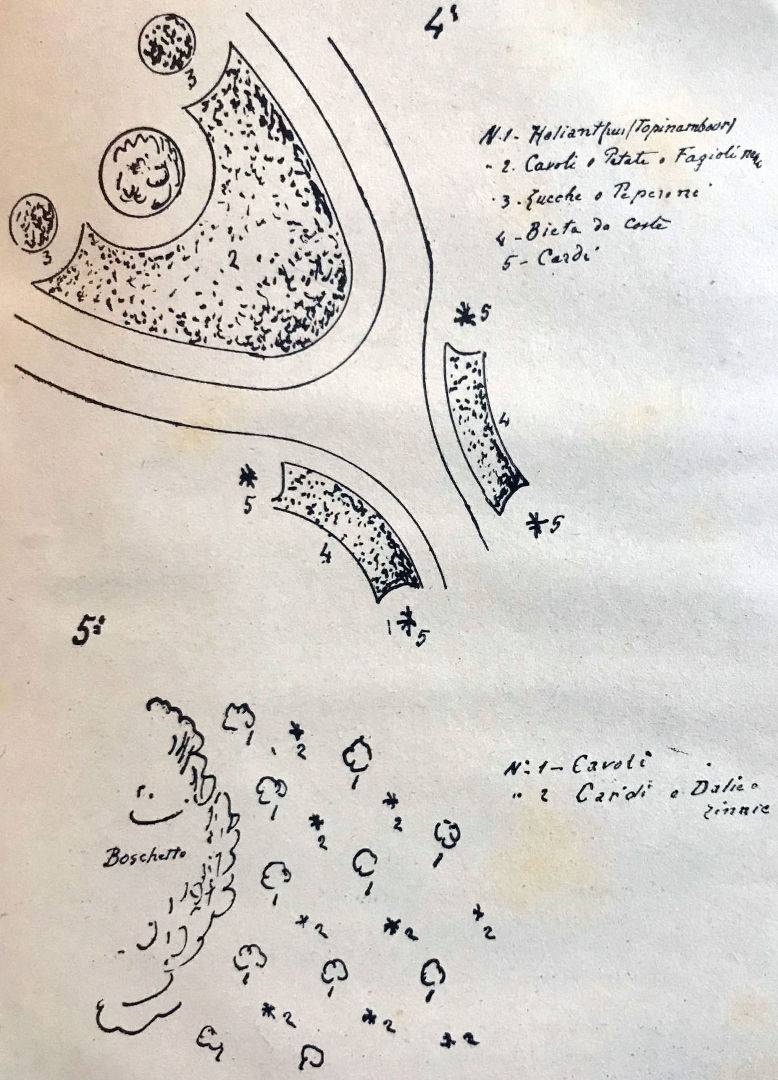 4ª
3
3
2
N.1- Helianthus (Topinambour)
" 2. Cavoli o Patate o Fagioli
" 3. Zucche o Peperoni
4 - Bieta da coste
5 - Cardi
5
4
5
5
4
5
5ª
1
2
1
N: 1 - Cavoli
" 2 Cardi o Dalie o
zinnie
1
2
2
1
Boschetto
1
1
2
2
2
1
1
1
2
2
2